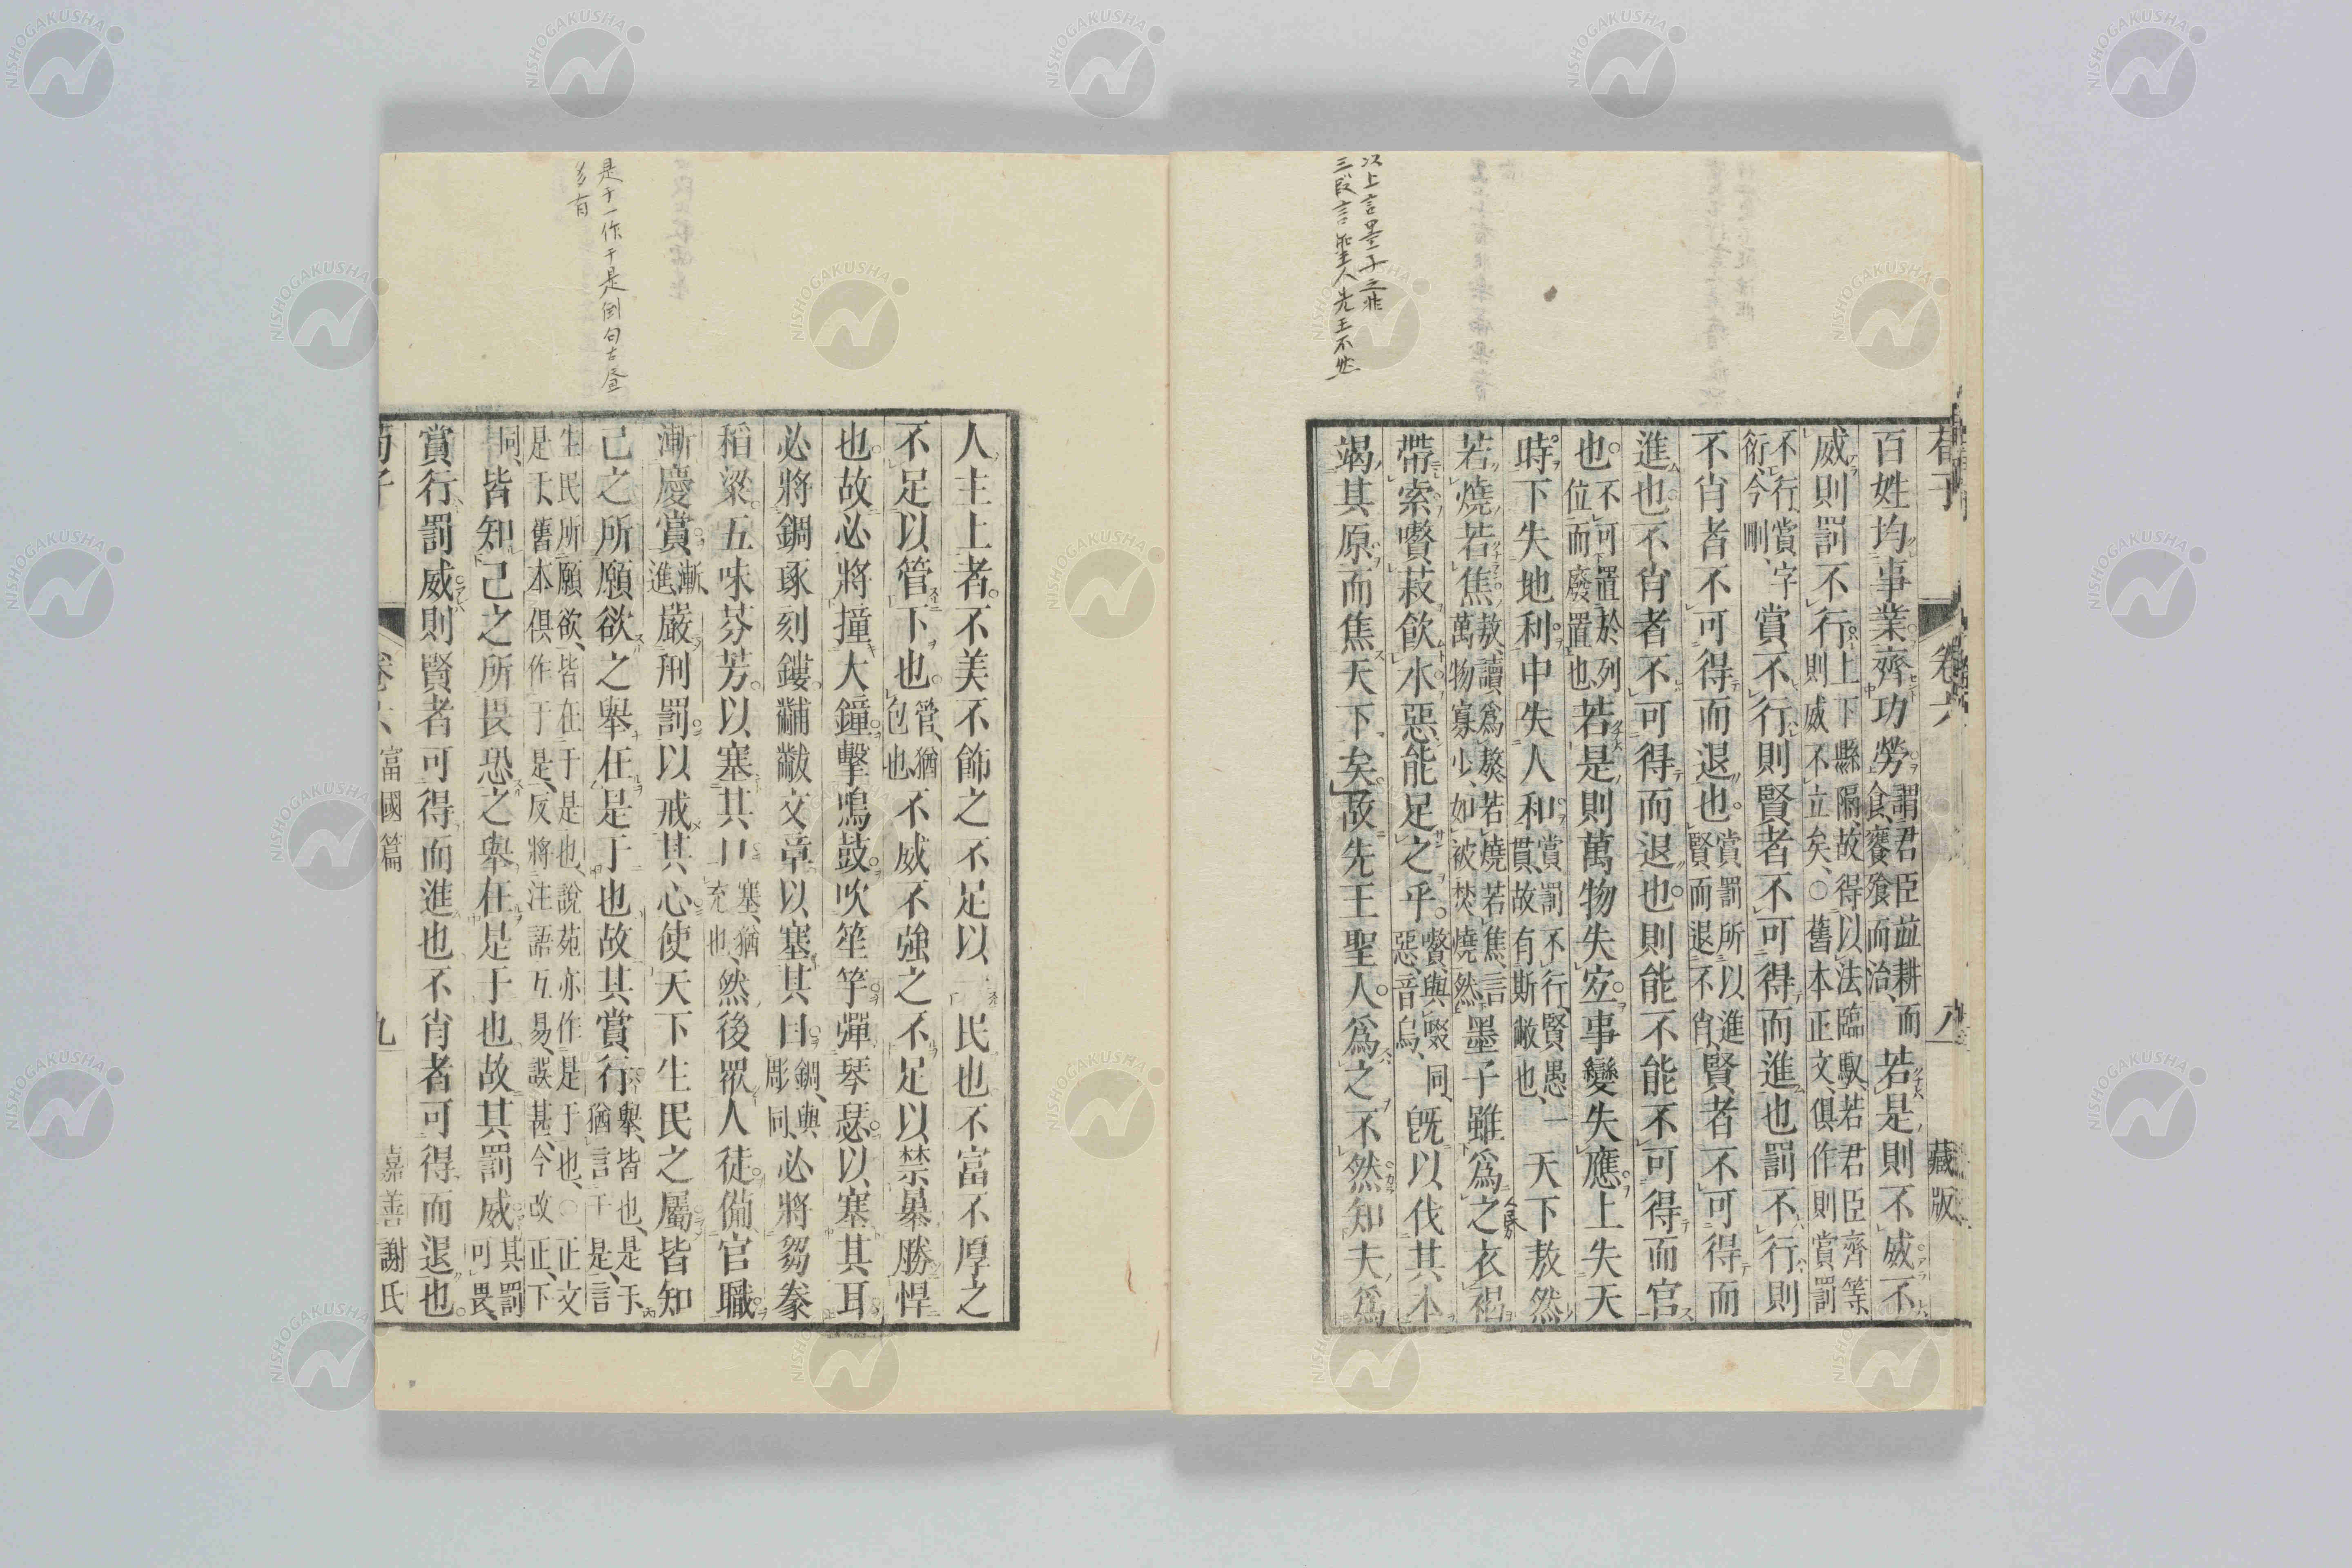 以上言墨子之非
三段言聖人先王不然
荀子 卷六 八 藏版
百姓均事業齊功勞謂君臣並耕而食饔飧而治若是則不威不
威則罰不行上下縣隔故得以法臨馭若君臣齊等則威不立矣○舊本正文俱作則賞罰
不行賞字衍今刪賞不行則賢者不可得而進也罰不行則
不肖者不可得而退也賞罰所以進賢而退不肖賢者不可得而
進也不肖者不可得而退也則能不能不可得而官
也不可置於列位而廢置也若是則萬物失宜事變失應上失天
時下失地利中失人和賞罰不行賢愚一貫故有斯敝也天下敖然
若燒若焦敖讀爲熬若燒若焦言萬物寡少如被焚燒然墨子雖爲之衣褐
帶索嚽菽飲水惡能足之乎嚽與啜同惡音烏既以伐其本
竭其原而焦天下矣故先王聖人爲之不然知夫爲
是于一作于是倒句古昼
多有
人主上者不美不飾之不足以一民也不富不厚之
不足以管下也管猶包也不威不強之不足以禁暴勝悍
也故必將撞大鐘擊鳴鼓吹笙竽彈琴瑟以塞其耳
必將錭琢刻鏤黼黻文章以塞其目錭與彫同必將芻豢
稻粱五味芬芳以塞其口塞猶充也然後眾人徒備官職
漸慶賞漸進嚴刑罰以戒其心使天下生民之屬皆知
己之所願欲之舉在是于也故其賞行舉皆也是于猶言于是言
生民所願欲皆在于是也說苑亦作是于也○正文是于舊本俱作于是反將注語互易誤甚今改正下
同皆知己之所畏恐之舉在是于也故其罰威其罰可畏
賞行罰威則賢者可得而進也不肖者可得而退也
荀子 卷六 富國篇 九 嘉善謝氏